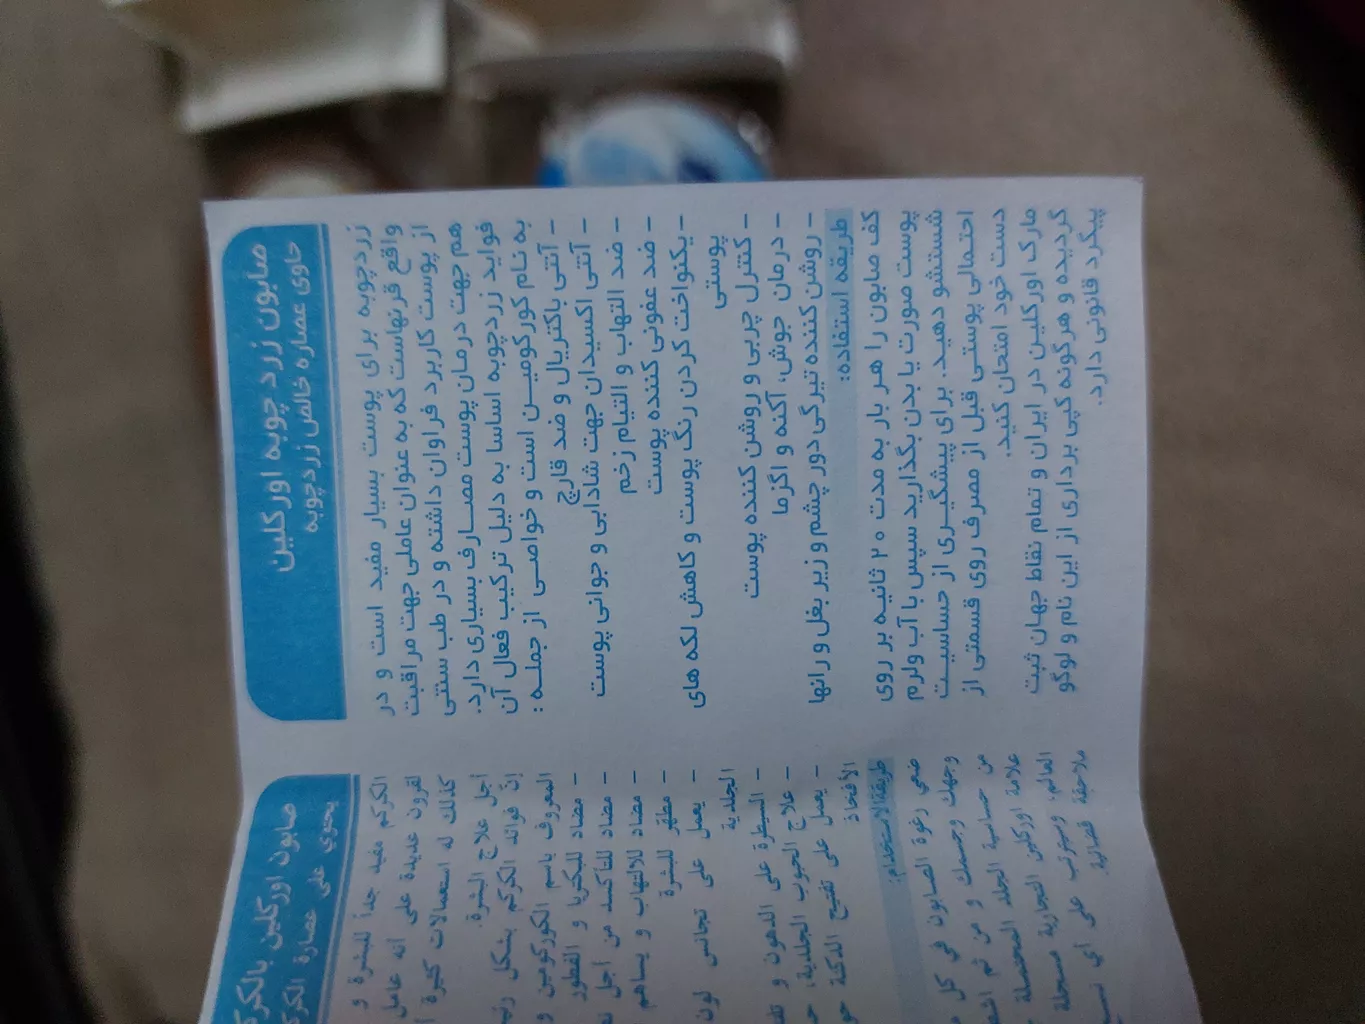 صابون زرد چوبه اورکلین
حاوی عصاره خالص زردچوبه
زردچوبه برای پوست بسیار مفید است و در
واقع قرنهاست که به عنوان عاملی جهت مراقبت
از پوست کاربرد فراوان داشته و در طب سنتی
هم جهت درمان پوست مصارف بسیاری دارد.
فواید زردچوبه اساسا به دلیل ترکیب فعال آن
به نام کورکومین است و خواصی از جمله :
- آنتی باکتریال و ضد قارچ
- آنتی اکسیدان جهت شادابی و جوانی پوست
- ضد التهاب و التیام زخم
- ضد عفونی کننده پوست
- یکنواخت کردن رنگ پوست و کاهش لکه های
پوستی
- کنترل چربی و روشن کننده پوست
- درمان جوش، آکنه و اگزما
- روشن کننده تیرگی دور چشم و زیر بغل و رانها
طریقه استفاده:
کف صابون را هر بار به مدت ۲۰ ثانیه بر روی
پوست صورت یا بدن بگذارید سپس با آب ولرم
شستشو دهید. برای پیشگیری از حساسیت
احتمالی پوستی قبل از مصرف روی قسمتی از
دست خود امتحان کنید.
مارک اورکلین در ایران و تمام نقاط جهان ثبت
گردیده و هرگونه کپی برداری از این نام و لوگو
پیگرد قانونی دارد.
صابون اورکلین
يحتوي على عصارة
الكركم مفيد جداً للبشرة و
لقرون عديدة على أنه عامل
كذلك له استعمالات كثيرة
أجل علاج البشرة.
إنّ فوائد الكركم بشكل
المعروف باسم الكوركومين و
- مضاد للبكتريا و الفطور
- مضاد للتأكسد من أجل
- مضاد للالتهاب و يساهم
- مطهر للبشرة
- يعمل على تجانس لون
الجلدية
- السيطرة على الدهون و
- علاج الحبوب الجلدية،
- يعمل على تفتيح الدكنة
الأفخاذ
طريقة الاستخدام:
ضعي رغوة الصابون في كل
وجهك وجسمك و من ثم
من حساسية الجلد المحتملة
علامة اورکلین التجارية مسجلة
العالم، وسيترتب على أي
ملاحقة قضائية.